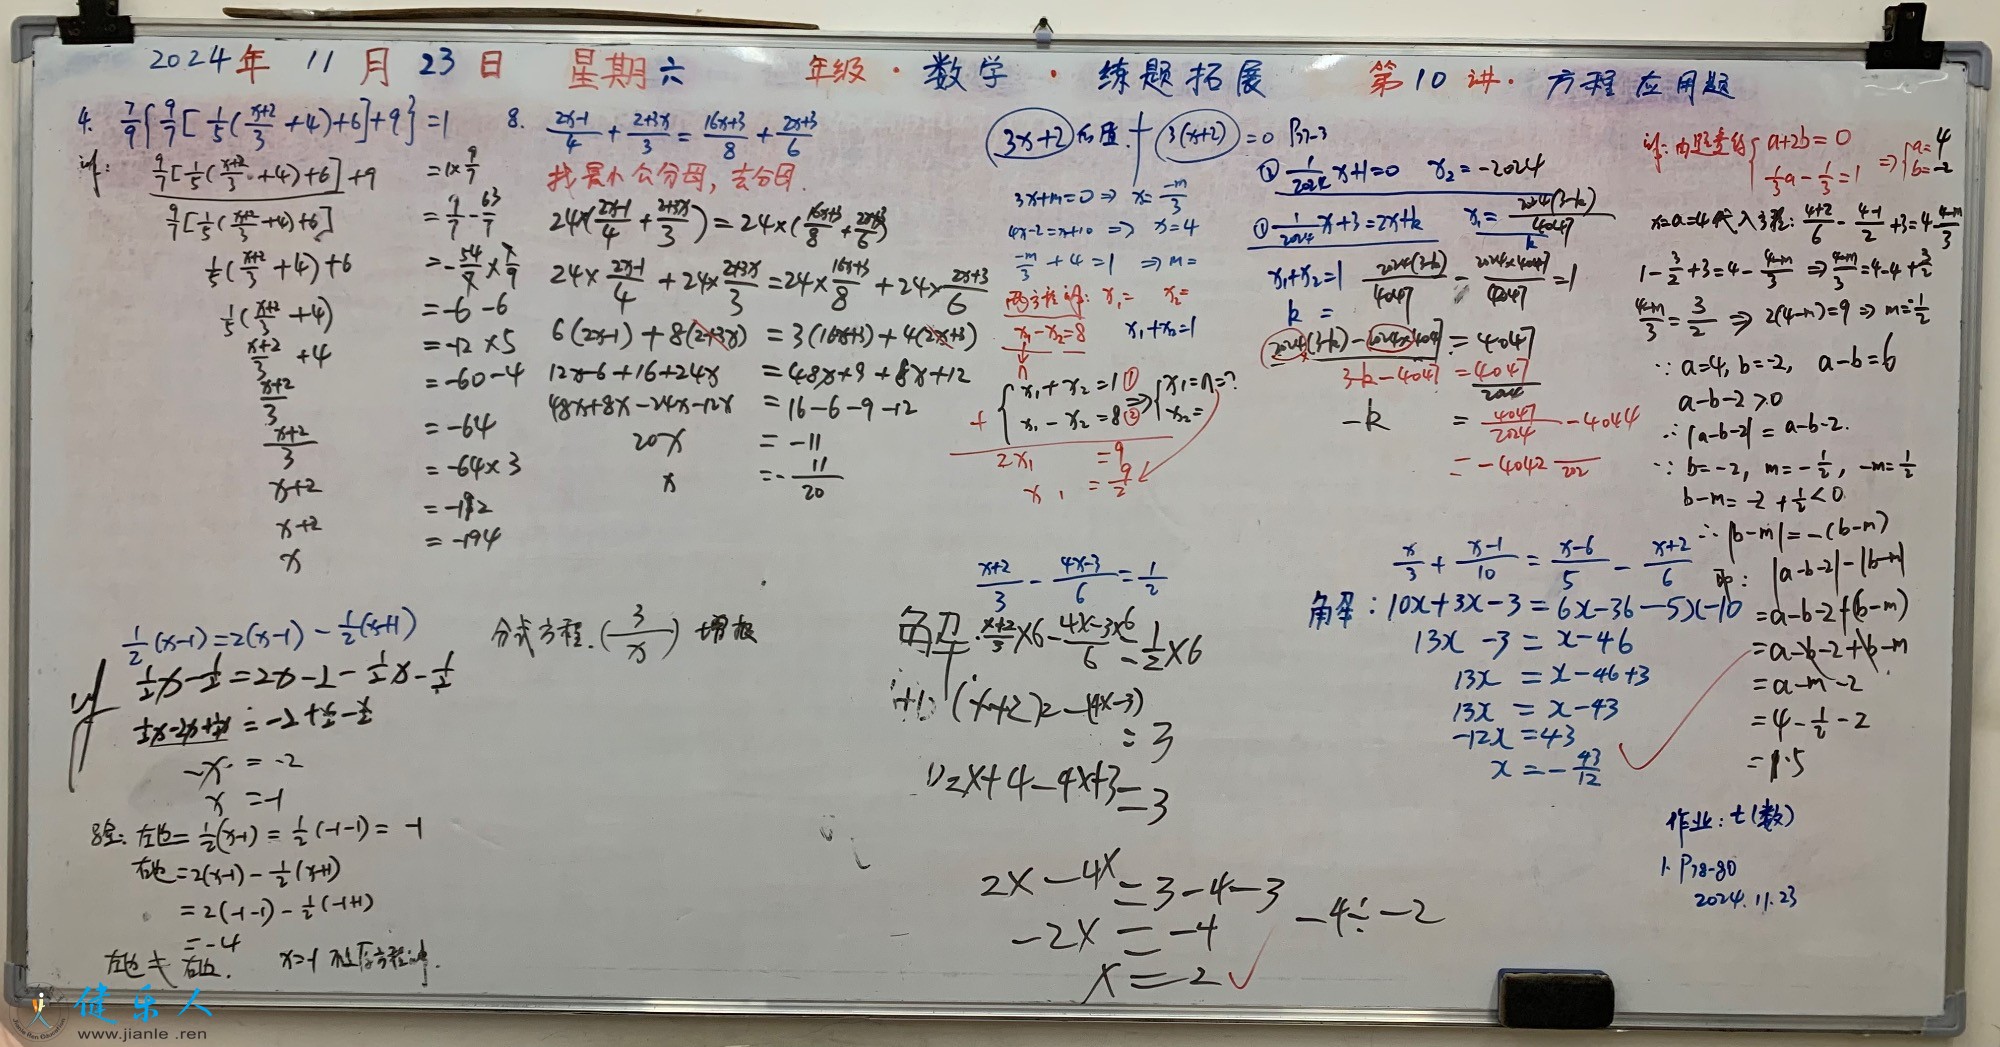 2024年 11月 23日 星期六 年级·数学·练题拓展 第10讲·方程应用题
4. 7/9{9/7[1/5((x+2)/3+4)+6]+9}=1
9/7[1/5((x+2)/3+4)+6]+9 =1×9/7
9/7[1/5((x+2)/3+4)+6] =9/7-63/7
1/5((x+2)/3+4)+6 =-54/7×7/9
1/5((x+2)/3+4) =-6-6
(x+2)/3+4 =-12×5
(x+2)/3 =-60-4
(x+2)/3 =-64
x+2 =-64×3
x+2 =-192
x =-194
8. (2x-1)/4+(2+3x)/3=(16x+3)/8+(2x+3)/6
找最小公分母,去分母.
24×((2x-1)/4+(2+3x)/3)=24×((16x+3)/8+(2x+3)/6)
24×(2x-1)/4+24×(2+3x)/3=24×(16x+3)/8+24×(2x+3)/6
6(2x-1)+8(2+3x)=3(16x+3)+4(2x+3)
12x-6+16+24x=48x+9+8x+12
48x+8x-24x-12x=16-6-9-12
20x =-11
x =-11/20
3x+2的值.+3(x+2)=0 P37-3
3x+m=0⇒x=-m/3
4x-2=x+10⇒x=4
-m/3+4=1 ⇒m=
两方程 x₁= x₂=
x₁-x₂=8 x₁+x₂=1
n
+{x₁+x₂=1① x₁-x₂=8②⇒{x₁=n=? x₂=
2x₁ =9
x₁ =9/2
② 1/2024 x+1=0 x₂=-2024
① 1/2024 x+3=2x+k x₁=2024(3-k)/4047
k
x₁+x₂=1 2024(3-k)/4047-2024×4047/4047=1
k=
2024(3-k)-2024×4047=4047
3-k-4047=4047/2024
-k =4047/2024-4044
=-4042 /202
由题意得{a+2b=0 1/3a-1/3=1⇒{a=4 b=-2
x=a=4代入方程:(4+2)/6-(4-1)/2+3=4-(4-m)/3
1-3/2+3=4-(4-m)/3⇒(4-m)/3=4-4+3/2
(4-m)/3=3/2⇒2(4-m)=9⇒m=-1/2
∵a=4,b=-2, a-b=6
a-b-2>0
∴|a-b-2|=a-b-2.
∵b=-2, m=-1/2, -m=1/2
b-m=-2+1/2<0
∴|b-m|=-(b-m)
即: |a-b-2|-|b-m|
=a-b-2+(b-m)
=a-b-2+b-m
=a-m-2
=4-1/2-2
=1.5
作业:七(数)
1. P78-80
2024.11.23
1/2(x-1)=2(x-1)-1/2(x+1)
1/2x-1/2=2x-2-1/2x-1/2
1/2x-2x+1/2x=-2+1/2-1/2
-x=-2
x=-1
验:左边=1/2(x-1)=1/2(-1-1)=-1
右边=2(x-1)-1/2(x+1)
=2(-1-1)-1/2(-1+1)
=-4
左边≠右边. x=-1不是原方程解.
分式方程.(3/x)增根
(x+2)/3-(4x-3)/6=1/2
解:(x+2)/3×6-(4x-3)/6×6=1/2×6
(x+2)2-(4x-3)
=3
2x+4-4x+3=3
2x-4x=3-4-3
-2x=-4 -4÷-2
x=2
x/3+(x-1)/10=(x-6)/5-(x+2)/6
解:10x+3x-3=6x-36-5x-10
13x-3=x-46
13x=x-46+3
13x=x-43
-12x=43
x=-43/12
健乐人
www.jianle.ren